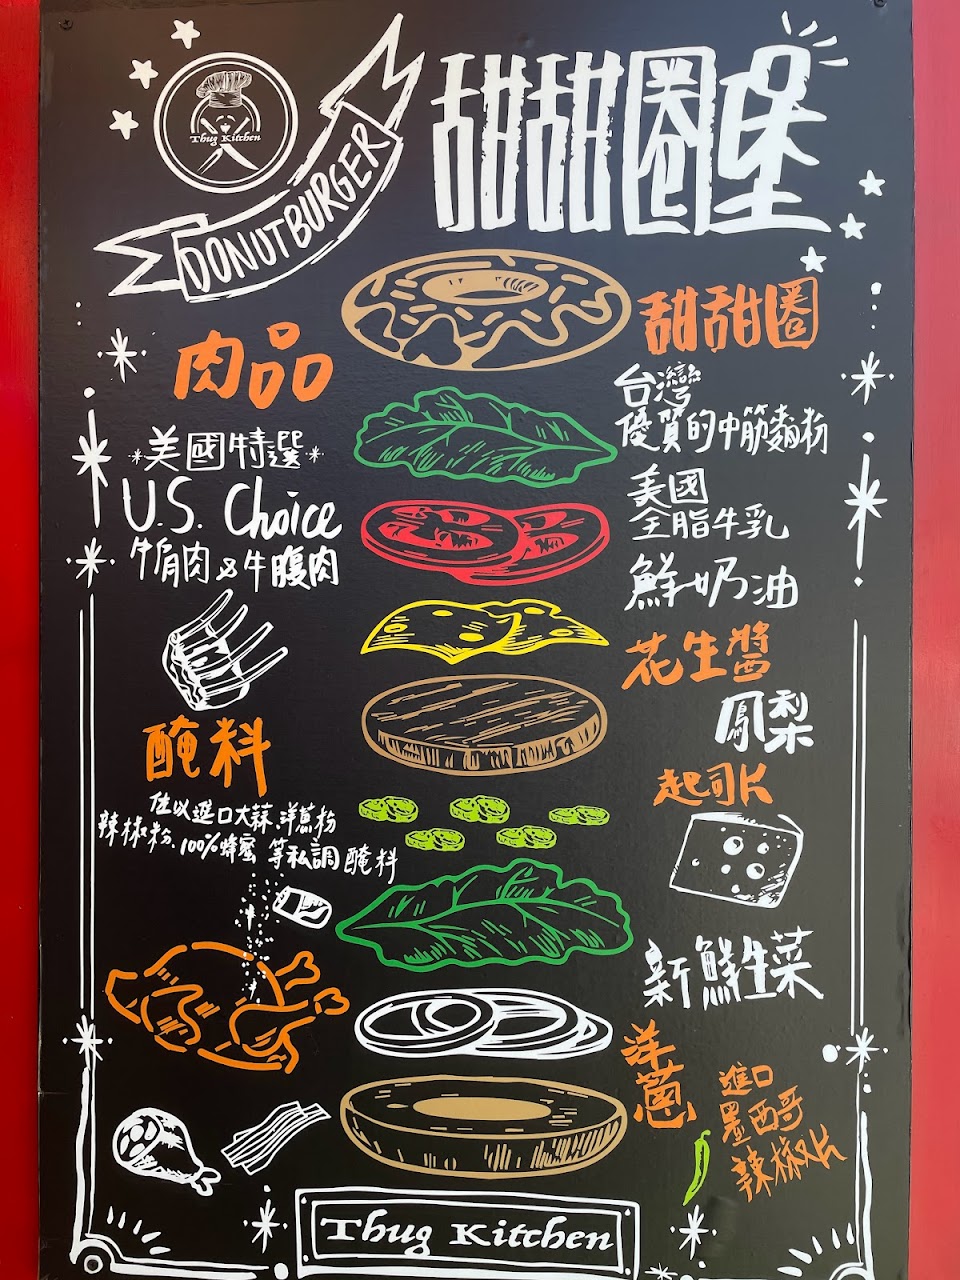 Thug Kitchen
DONUT BURGER
甜甜圈堡
肉品
*美國特選*
U.S. Choice
牛肩肉&牛腹肉
醃料
佐以進口大蒜、洋蔥粉
辣椒粉、100%蜂蜜 等私調醃料
甜甜圈
台灣
優質的中筋麵粉
美國
全脂牛乳
鮮奶油
花生醬
鳳梨
起司片
新鮮生菜
洋蔥
進口
墨西哥
辣椒片
Thug Kitchen